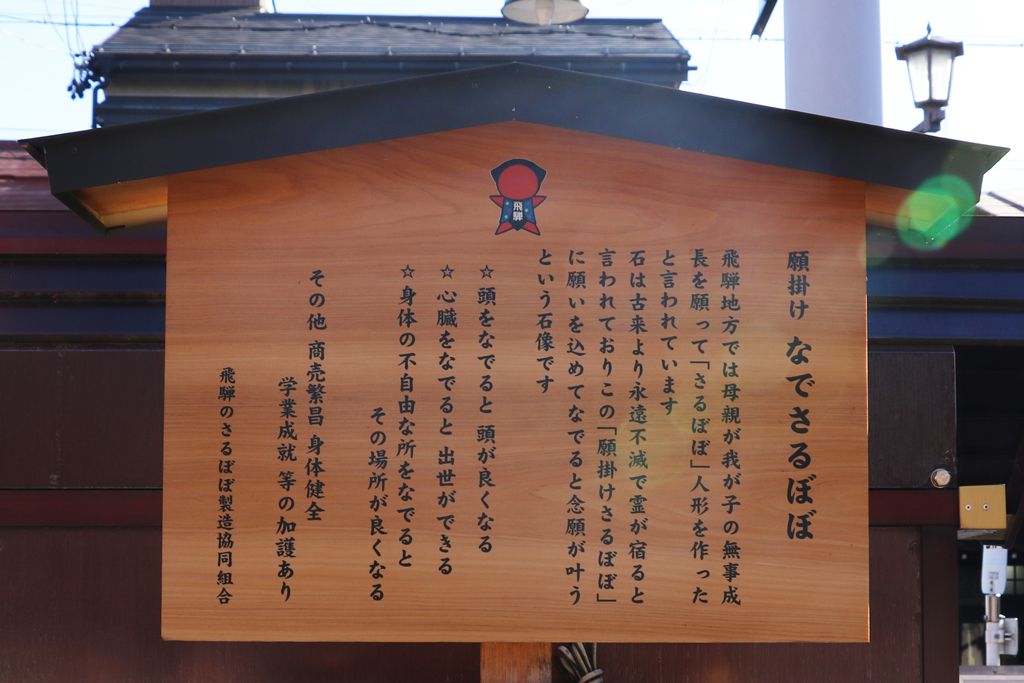 飛騨
願掛け なでさるぼぼ
飛騨地方では母親が我が子の無事成
長を願って「さるぼぼ」人形を作った
と言われています
石は古来より永遠不滅で霊が宿ると
言われておりこの「願掛けさるぼぼ」
に願いを込めてなでると念願が叶う
という石像です
☆頭をなでると 頭が良くなる
☆心臓をなでると 出世ができる
☆身体の不自由な所をなでると
その場所が良くなる
その他 商売繁昌 身体健全
学業成就 等の加護あり
飛騨のさるぼぼ製造協同組合